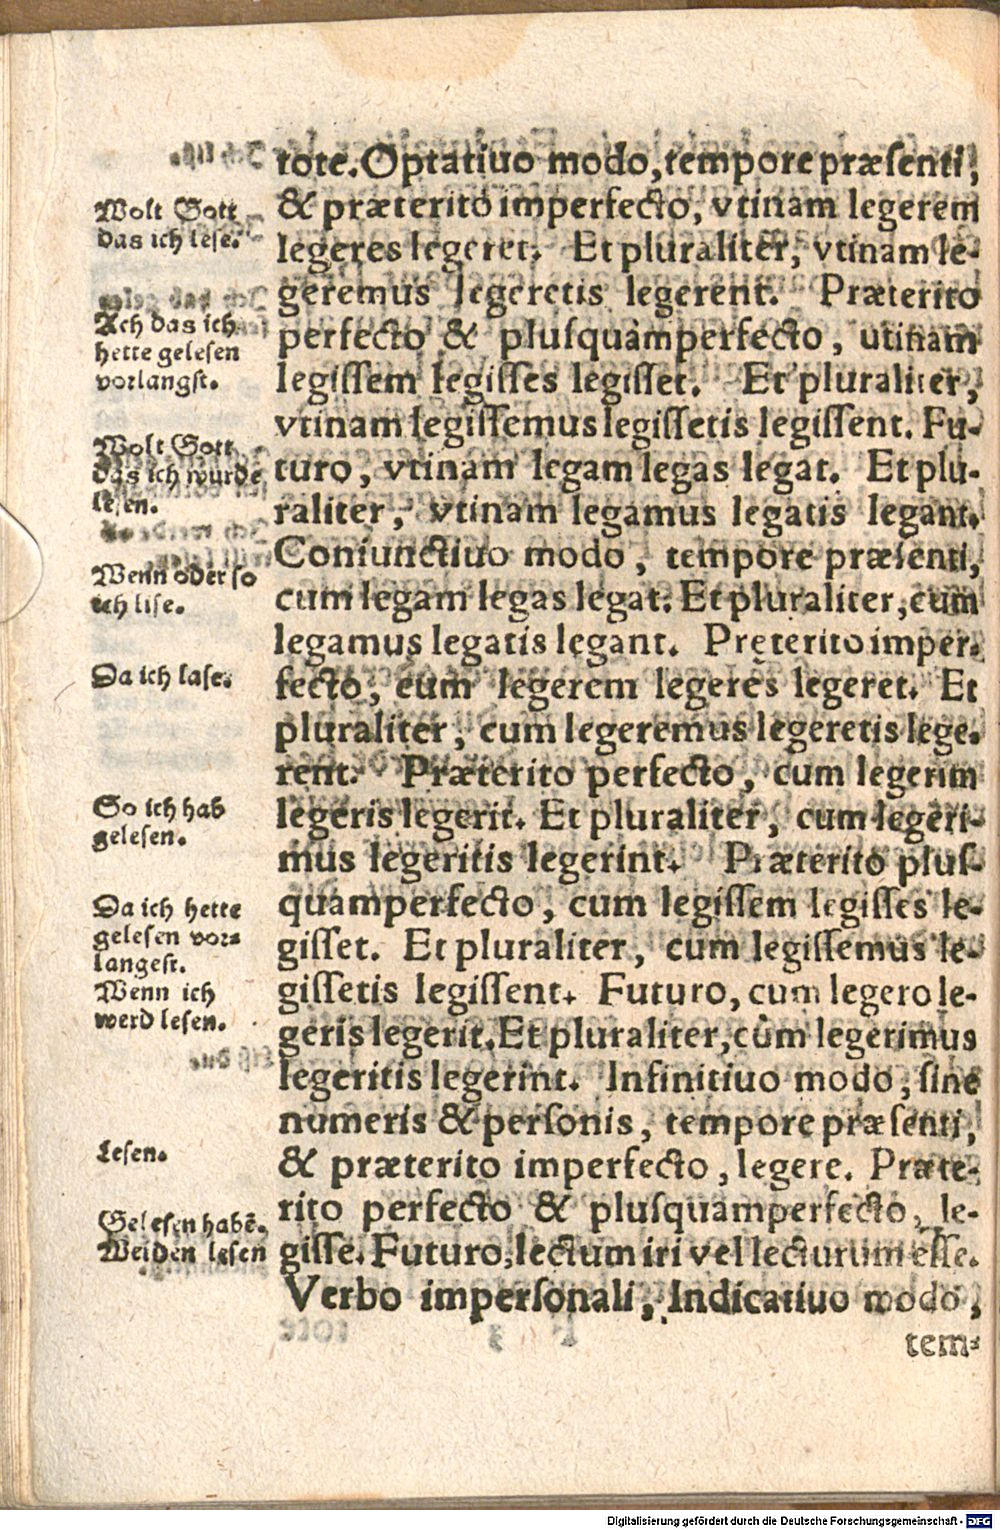 tote. Optatiuo modo, tempore præsenti,
& præterito imperfecto, vtinam legerem
legeres legeret. Et pluraliter, vtinam le-
geremus legeretis legerent. Præterito
perfecto & plusquàmperfecto, utinam
legissem legisses legisset. Et pluraliter,
vtinam legissemus legissetis legissent. Fu-
turo, vtinam legam legas legat. Et plu-
raliter, vtinam legamus legatis legant.
Coniunctiuo modo, tempore præsenti,
cum legam legas legat. Et pluraliter, cum
legamus legatis legant. Pręterito imper-
fecto, cum legerem legeres legeret. Et
pluraliter, cum legeremus legeretis lege-
rent. Præterito perfecto, cum legerim
legeris legerit. Et pluraliter, cum legeri-
mus legeritis legerint. Præterito plus-
quamperfecto, cum legissem legisses le-
gisset. Et pluraliter, cum legissemus le-
gissetis legissent. Futuro, cum legero le-
geris legerit. Et pluraliter, cùm legerimus
legeritis legerint. Infinitiuo modo, sine
numeris & personis, tempore præsenti,
& præterito imperfecto, legere. Præte-
rito perfecto & plusquamperfecto, le-
gisse. Futuro, lectum iri vel lecturum esse.
Verbo impersonali, Indicatiuo modo,
tem-
Wolt Gott
das ich lese.
Ach das ich
hette gelesen
vorlangst.
Wolt Gott
das ich wurde
lesen.
Wenn oder so
ich lise.
Da ich lase.
So ich hab
gelesen.
Da ich hette
gelesen vor-
langest.
Wenn ich
werd lesen.
Lesen.
Gelesen habē.
Werden lesen
Digitalisierung gefördert durch die Deutsche Forschungsgemeinschaft - DFG